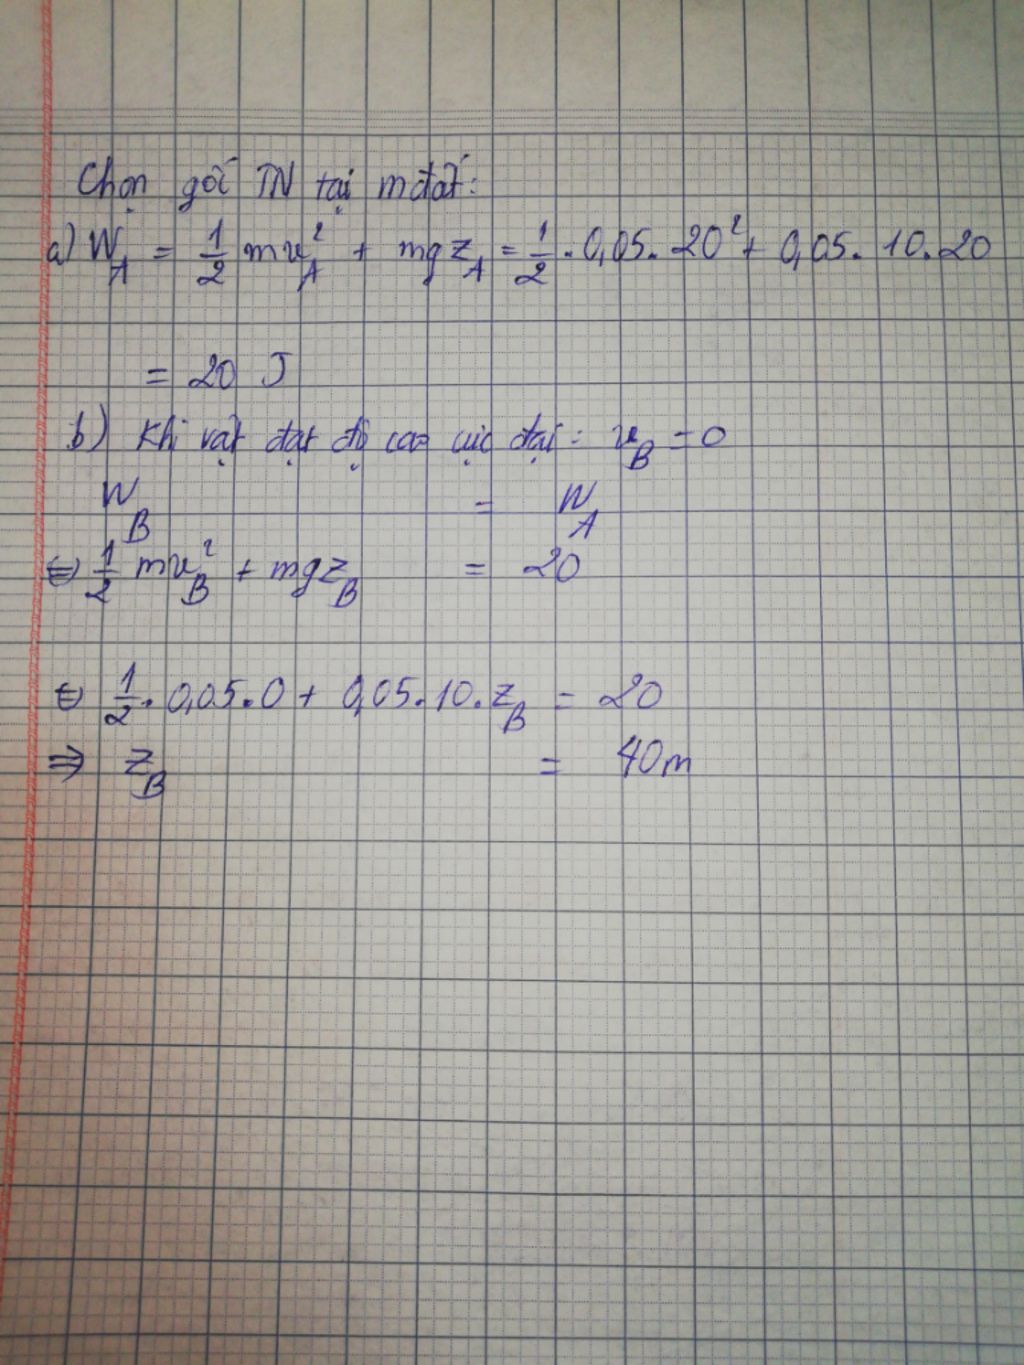 Chọn gốc TN tại mđất:
a) W_A = 1/2 mv_A² + mgz_A = 1/2 . 0,05 . 20² + 0,05 . 10 . 20
= 20 J
b) Khi vật đạt độ cao cực đại: v_B = 0
W_B = W_A
⇔ 1/2 mv_B² + mgz_B = 20
⇔ 1/2 . 0,05 . 0 + 0,05 . 10 . z_B = 20
⇒ z_B = 40m